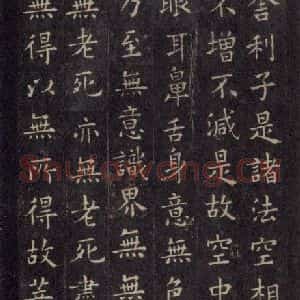 舍利子是諸法空相
不增不減是故空中
眼耳鼻舌身意無色
乃至無意識界無無
無老死亦無老死盡
無得以無所得故菩
Shufawang.CN